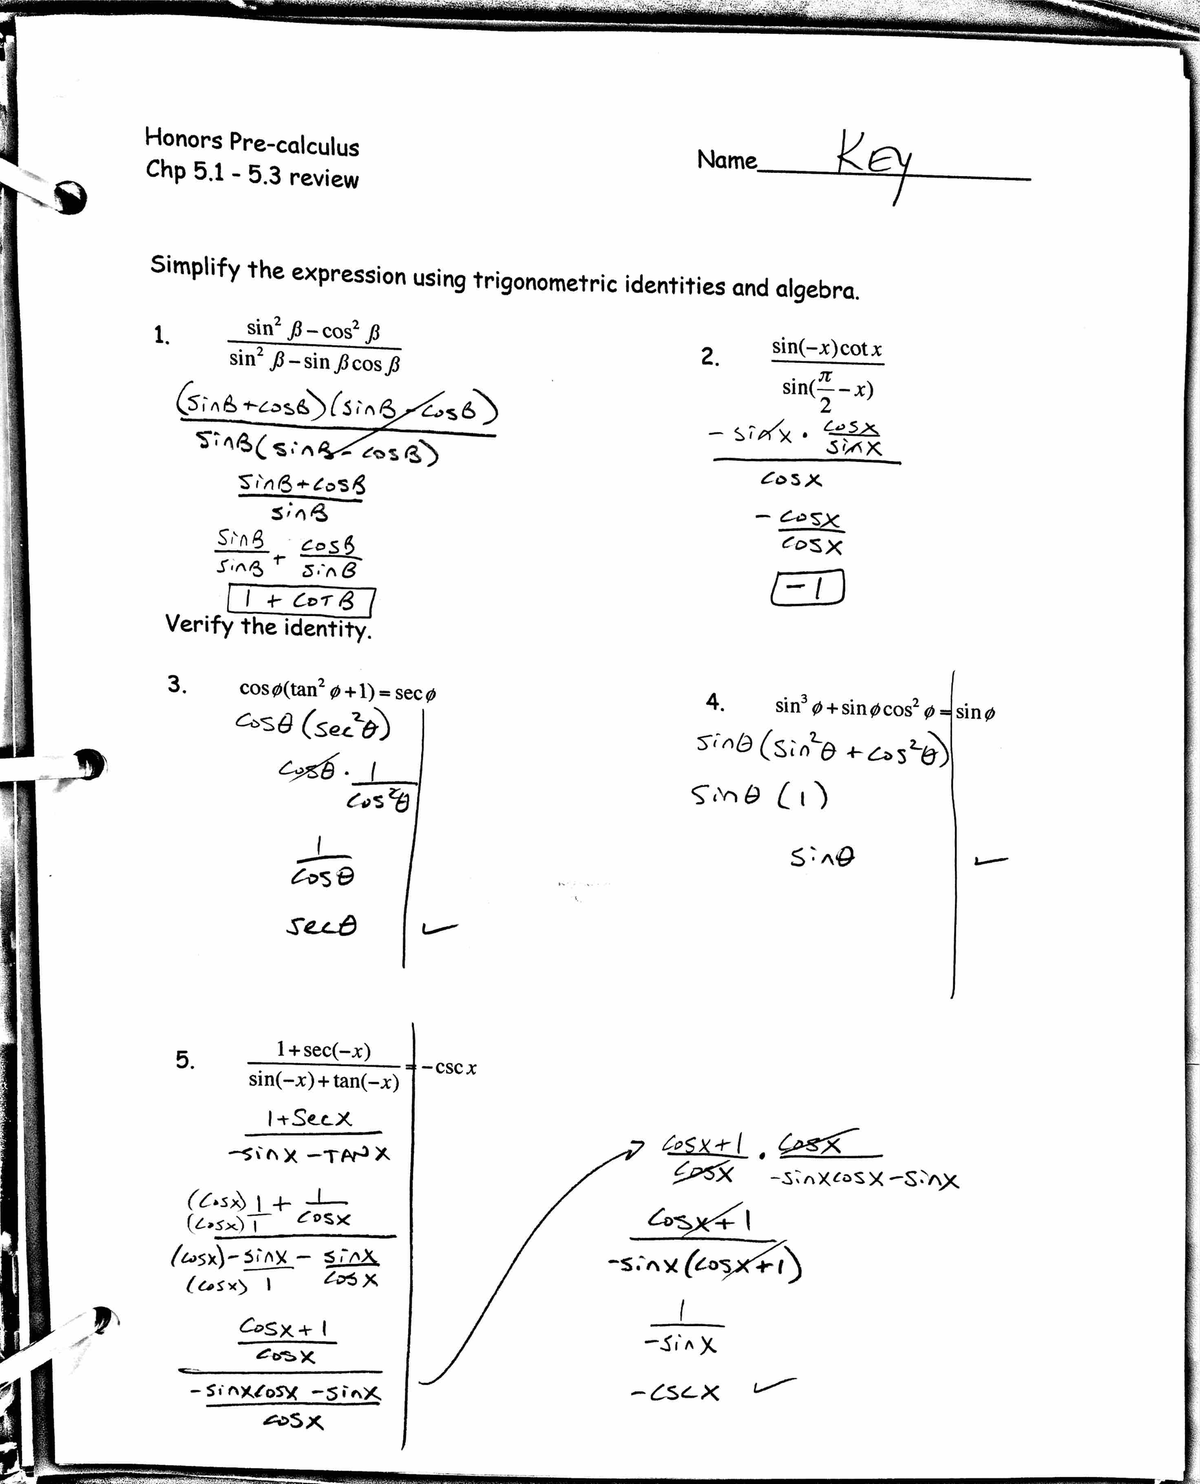 Honors Pre-calculus
Chp 5.1 - 5.3 review
Name KEY
Simplify the expression using trigonometric identities and algebra.
1. (sin² β – cos² β)/(sin² β – sin β cos β)
((sinβ+cosβ)(sinβ-cosβ))/(sinβ(sinβ-cosβ))
(sinβ+cosβ)/(sinβ)
sinβ/sinβ + cosβ/sinβ
1 + COT β
2. (sin(−x)cot x)/(sin(π/2 − x))
(-sinx · cosx/sinx)/(cosx)
-cosx/cosx
-1
Verify the identity.
3. cos ø(tan² ø +1) = sec ø
cosθ (sec²θ)
cosθ · 1/cos²θ
1/cosθ
secθ ✓
4. sin³ ø + sin ø cos² ø = sin ø
sinθ (sin²θ + cos²θ)
sinθ (1)
sinθ ✓
5. (1+sec(−x))/(sin(−x)+tan(−x)) = −csc x
(1+Secx)/(-sinx -TANX)
((cosx)/(cosx) 1/1 + 1/cosx)/((cosx)/(cosx) -sinx/1 - sinx/cosx)
((cosx+1)/cosx)/((-sinxcosx -sinx)/cosx)
(cosx+1)/cosx · cosx/(-sinxcosx-sinx)
(cosx+1)/(-sinx(cosx+1))
1/(-sinx)
-cscx ✓